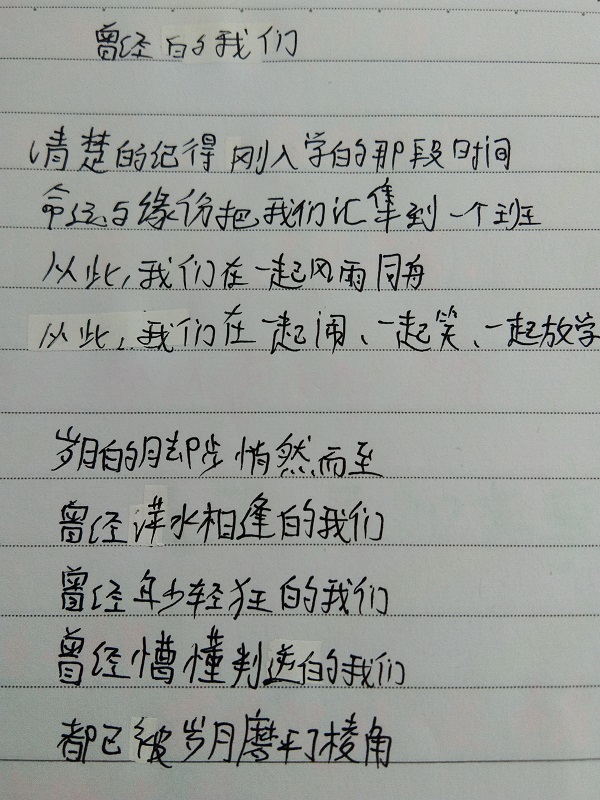 曾经的我们
清楚的纪得刚入学的那段时间
命运与缘份把我们汇集到一个班
从此,我们在一起风雨同舟
从此,我们在一起闹、一起笑、一起放学
岁月的脚步悄然而至
曾经萍水相逢的我们
曾经年少轻狂的我们
曾经懵懂判逆的我们
都已被岁月磨平了棱角